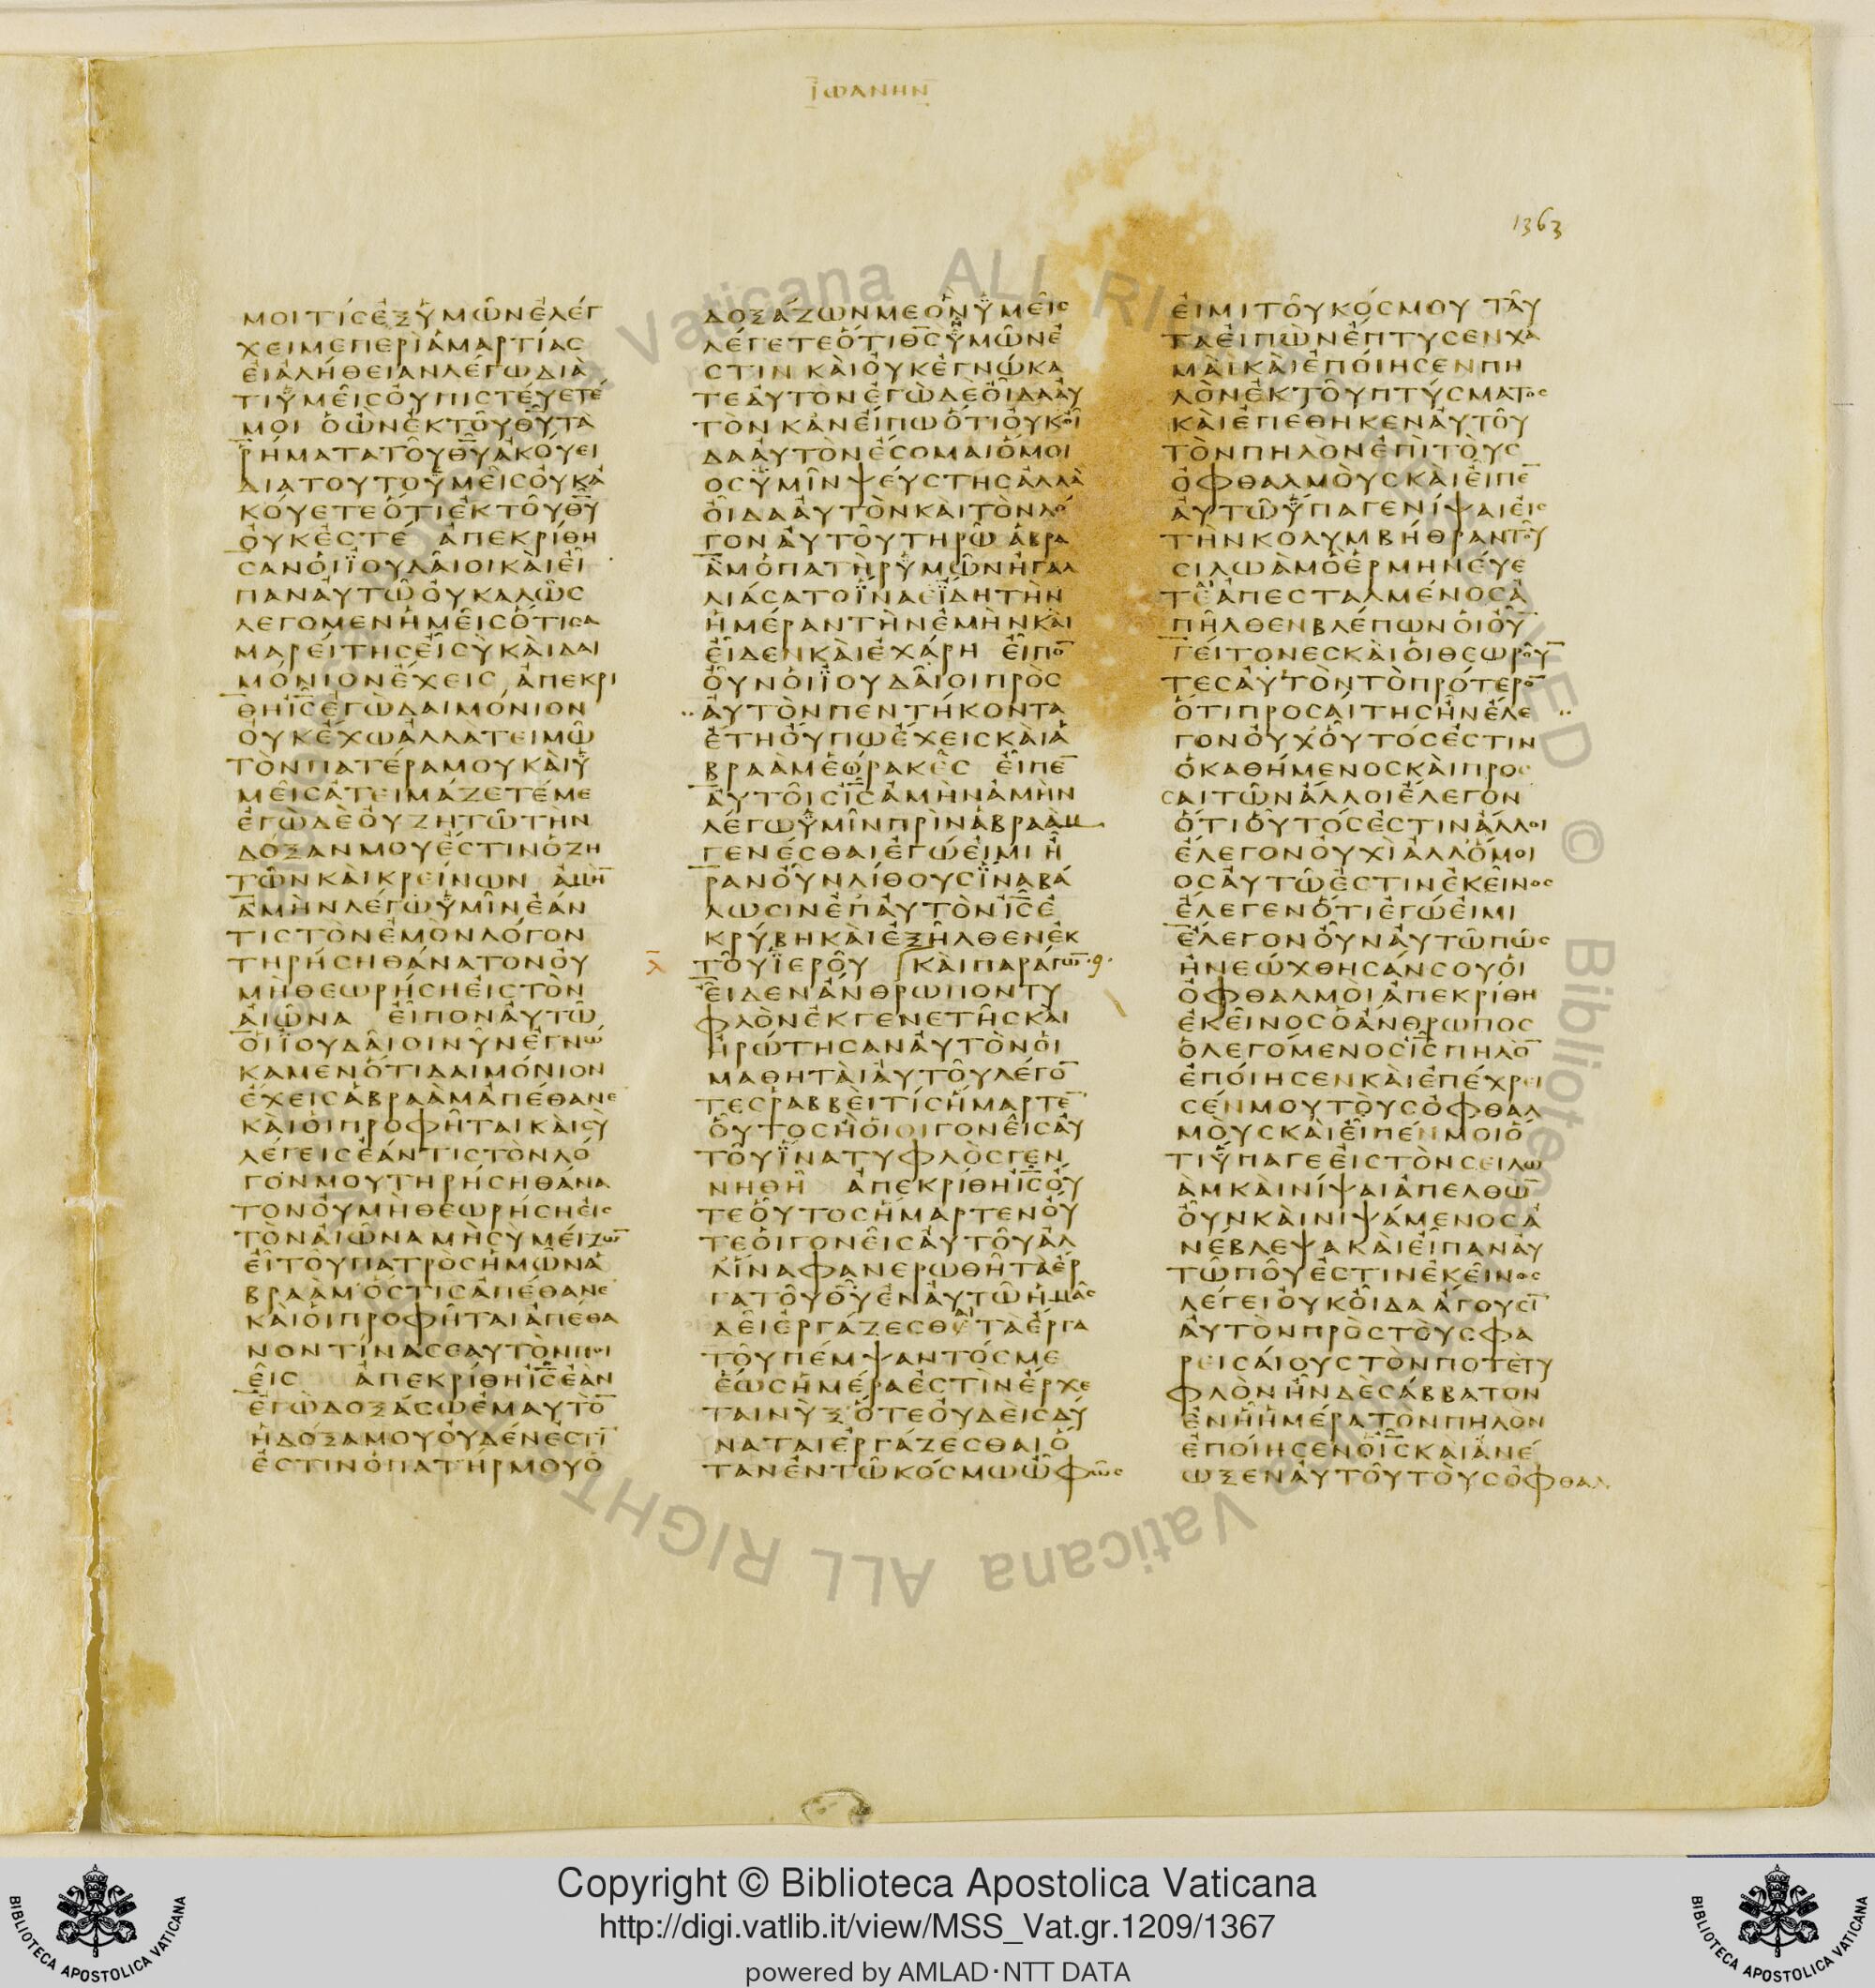 ΙΩΑΝΗΝ
1363
ΜΟΙΤΙΣΕΞΥΜΩΝΕΛΕΓ
ΧΕΙΜΕΠΕΡΙΑΜΑΡΤΙΑΣ
ΕΙΑΛΗΘΕΙΑΝΛΕΓΩΔΙΑ
ΤΙΥΜΕΙΣΟΥΠΙΣΤΕΥΕΤΕ
ΜΟΙ ΟΩΝΕΚΤΟΥΘΥΤΑ
ΡΗΜΑΤΑΤΟΥΘΥΑΚΟΥΕΙ
ΔΙΑΤΟΥΤΟΥΜΕΙΣΟΥΚΑ
ΚΟΥΕΤΕΟΤΙΕΚΤΟΥΘΥ
ΟΥΚΕΣΤΕ ΑΠΕΚΡΙΘΗ
ΣΑΝΟΙΪΟΥΔΑΙΟΙΚΑΙΕΙ
ΠΑΝΑΥΤΩΟΥΚΑΛΩΣ
ΛΕΓΟΜΕΝΗΜΕΙΣΟΤΙΣΑ
ΜΑΡΕΙΤΗΣΕΙΣΥΚΑΙΔΑΙ
ΜΟΝΙΟΝΕΧΕΙΣ ΑΠΕΚΡΙ
ΘΗΙΣΕΓΩΔΑΙΜΟΝΙΟΝ
ΟΥΚΕΧΩΑΛΛΑΤΕΙΜΩ
ΤΟΝΠΑΤΕΡΑΜΟΥΚΑΙΥ
ΜΕΙΣΑΤΕΙΜΑΖΕΤΕΜΕ
ΕΓΩΔΕΟΥΖΗΤΩΤΗΝ
ΔΟΞΑΝΜΟΥΕΣΤΙΝΟΖΗ
ΤΩΝΚΑΙΚΡΕΙΝΩΝ ΑΜΗ̅
ΑΜΗΝΛΕΓΩΥΜΙΝΕΑΝ
ΤΙΣΤΟΝΕΜΟΝΛΟΓΟΝ
ΤΗΡΗΣΗΘΑΝΑΤΟΝΟΥ
ΜΗΘΕΩΡΗΣΗΕΙΣΤΟΝ
ΑΙΩΝΑ ΕΙΠΟΝΑΥΤΩ
ΟΙΪΟΥΔΑΙΟΙΝΥΝΕΓΝΩ
ΚΑΜΕΝΟΤΙΔΑΙΜΟΝΙΟΝ
ΕΧΕΙΣΑΒΡΑΑΜΑΠΕΘΑΝΕ
ΚΑΙΟΙΠΡΟΦΗΤΑΙΚΑΙΣΥ
ΛΕΓΕΙΣΕΑΝΤΙΣΤΟΝΛΟ
ΓΟΝΜΟΥΤΗΡΗΣΗΘΑΝΑ
ΤΟΝΟΥΜΗΘΕΩΡΗΣΗΕΙΣ
ΤΟΝΑΙΩΝΑΜΗΣΥΜΕΙΖΩ̅
ΕΙΤΟΥΠΑΤΡΟΣΗΜΩΝΑ
ΒΡΑΑΜΟΣΤΙΣΑΠΕΘΑΝΕ
ΚΑΙΟΙΠΡΟΦΗΤΑΙΑΠΕΘΑ
ΝΟΝΤΙΝΑΣΕΑΥΤΟΝΠΟΙ
ΕΙΣ ΑΠΕΚΡΙΘΗΙΣΕΑΝ
ΕΓΩΔΟΞΑΣΩΕΜΑΥΤΟ̅
ΗΔΟΞΑΜΟΥΟΥΔΕΝΕΣΤΙ̅
ΕΣΤΙΝΟΠΑΤΗΡΜΟΥΟ
ΔΟΞΑΖΩΝΜΕΟΝΥΜΕΙΣ
ΛΕΓΕΤΕΟΤΙΘΣΥΜΩΝΕ
ΣΤΙΝ ΚΑΙΟΥΚΕΓΝΩΚΑ
ΤΕΑΥΤΟΝΕΓΩΔΕΟΙΔΑΑΥ
ΤΟΝ ΚΑΝΕΙΠΩΟΤΙΟΥΚΟΙ
ΔΑΑΥΤΟΝΕΣΟΜΑΙΟΜΟΙ
ΟΣΥΜΙΝΨΕΥΣΤΗΣΑΛΛΑ
ΟΙΔΑΑΥΤΟΝΚΑΙΤΟΝΛΟ
ΓΟΝΑΥΤΟΥΤΗΡΩ ΑΒΡΑ
ΑΜΟΠΑΤΗΡΥΜΩΝΗΓΑΛ
ΛΙΑΣΑΤΟΪΝΑΕΙΔΗΤΗΝ
ΗΜΕΡΑΝΤΗΝΕΜΗΝΚΑΙ
ΕΙΔΕΝΚΑΙΕΧΑΡΗ ΕΙΠΟ̅
ΟΥΝΟΙΪΟΥΔΑΙΟΙΠΡΟΣ
ΑΥΤΟΝΠΕΝΤΗΚΟΝΤΑ
ΕΤΗΟΥΠΩΕΧΕΙΣΚΑΙΑ
ΒΡΑΑΜΕΩΡΑΚΕΣ ΕΙΠΕ̅
ΑΥΤΟΙΣΙΣΑΜΗΝΑΜΗΝ
ΛΕΓΩΥΜΙΝΠΡΙΝΑΒΡΑΑΜ
ΓΕΝΕΣΘΑΙΕΓΩΕΙΜΙ Η
ΡΑΝΟΥΝΛΙΘΟΥΣΪΝΑΒΑ
ΛΩΣΙΝΕΠΑΥΤΟΝΙΣΕ
ΚΡΥΒΗΚΑΙΕΞΗΛΘΕΝΕΚ
ΤΟΥΪΕΡΟΥ ΚΑΙΠΑΡΑΓΩ̅
ΕΙΔΕΝΑΝΘΡΩΠΟΝΤΥ
ΦΛΟΝΕΚΓΕΝΕΤΗΣΚΑΙ
ΗΡΩΤΗΣΑΝΑΥΤΟΝΟΙ
ΜΑΘΗΤΑΙΑΥΤΟΥΛΕΓΟ̅
ΤΕΣΡΑΒΒΕΙΤΙΣΗΜΑΡΤΕ̅
ΟΥΤΟΣΗΟΙΟΙΓΟΝΕΙΣΑΥ
ΤΟΥΪΝΑΤΥΦΛΟΣΓΕΝ
ΝΗΘΗ ΑΠΕΚΡΙΘΗΙΣΟΥ
ΤΕΟΥΤΟΣΗΜΑΡΤΕΝΟΥ
ΤΕΟΙΓΟΝΕΙΣΑΥΤΟΥΑΛ
ΛΙΝΑΦΑΝΕΡΩΘΗΤΑΕΡ
ΓΑΤΟΥΘΥΕΝΑΥΤΩΗΜΑΣ
ΔΕΙΕΡΓΑΖΕΣΘΑΙΤΑΕΡΓΑ
ΤΟΥΠΕΜΨΑΝΤΟΣΜΕ
ΕΩΣΗΜΕΡΑΕΣΤΙΝΕΡΧΕ
ΤΑΙΝΥΞΟΤΕΟΥΔΕΙΣΔΥ
ΝΑΤΑΙΕΡΓΑΖΕΣΘΑΙΟ
ΤΑΝΕΝΤΩΚΟΣΜΩΩΦΩΣ
ΕΙΜΙΤΟΥΚΟΣΜΟΥ ΤΑΥ
ΤΑΕΙΠΩΝΕΠΤΥΣΕΝΧΑ
ΜΑΙΚΑΙΕΠΟΙΗΣΕΝΠΗ
ΛΟΝΕΚΤΟΥΠΤΥΣΜΑΤΟΣ
ΚΑΙΕΠΕΘΗΚΕΝΑΥΤΟΥ
ΤΟΝΠΗΛΟΝΕΠΙΤΟΥΣ
ΟΦΘΑΛΜΟΥΣΚΑΙΕΙΠΕ̅
ΑΥΤΩΥΠΑΓΕΝΙΨΑΙΕΙΣ
ΤΗΝΚΟΛΥΜΒΗΘΡΑΝΤΟΥ
ΣΙΛΩΑΜΟΕΡΜΗΝΕΥΕ
ΤΕΑΠΕΣΤΑΛΜΕΝΟΣΑ
ΠΗΛΘΕΝΒΛΕΠΩΝΟΙΟΥ̅
ΓΕΙΤΟΝΕΣΚΑΙΟΙΘΕΩΡΟΥ̅
ΤΕΣΑΥΤΟΝΤΟΠΡΟΤΕΡΟ̅
ΟΤΙΠΡΟΣΑΙΤΗΣΗΝΕΛΕ
ΓΟΝΟΥΧΟΥΤΟΣΕΣΤΙΝ
ΟΚΑΘΗΜΕΝΟΣΚΑΙΠΡΟΣ
ΑΙΤΩΝΑΛΛΟΙΕΛΕΓΟΝ
ΟΤΙΟΥΤΟΣΕΣΤΙΝΑΛΛΟΙ
ΕΛΕΓΟΝΟΥΧΙΑΛΛΟΜΟΙ
ΟΣΑΥΤΩΕΣΤΙΝΕΚΕΙΝΟΣ
ΕΛΕΓΕΝΟΤΙΕΓΩΕΙΜΙ
ΕΛΕΓΟΝΟΥΝΑΥΤΩΠΩΣ
ΗΝΕΩΧΘΗΣΑΝΣΟΥΟΙ
ΟΦΘΑΛΜΟΙΑΠΕΚΡΙΘΗ
ΕΚΕΙΝΟΣΟΑΝΘΡΩΠΟΣ
ΟΛΕΓΟΜΕΝΟΣΙΣΠΗΛΟ̅
ΕΠΟΙΗΣΕΝΚΑΙΕΠΕΧΡΕΙ
ΣΕΝΜΟΥΤΟΥΣΟΦΘΑΛ
ΜΟΥΣΚΑΙΕΙΠΕΝΜΟΙΟ
ΤΙΥΠΑΓΕΕΙΣΤΟΝΣΕΙΛΩ
ΑΜΚΑΙΝΙΨΑΙΑΠΕΛΘΩ̅
ΟΥΝΚΑΙΝΙΨΑΜΕΝΟΣΑ
ΝΕΒΛΕΨΑΚΑΙΕΙΠΑΝΑΥ
ΤΩΠΟΥΕΣΤΙΝΕΚΕΙΝΟΣ
ΛΕΓΕΙΟΥΚΟΙΔΑΑΓΟΥΣΙ̅
ΑΥΤΟΝΠΡΟΣΤΟΥΣΦΑ
ΡΕΙΣΑΙΟΥΣΤΟΝΠΟΤΕΤΥ
ΦΛΟΝΗΝΔΕΣΑΒΒΑΤΟΝ
ΕΝΗΗΜΕΡΑΤΟΝΠΗΛΟΝ
ΕΠΟΙΗΣΕΝΟΙΣΚΑΙΑΝΕ
ΩΞΕΝΑΥΤΟΥΤΟΥΣΟΦΘΑΛ
Copyright © Biblioteca Apostolica Vaticana
http://digi.vatlib.it/view/MSS_Vat.gr.1209/1367
powered by AMLAD·NTT DATA
BIBLIOTECA APOSTOLICA VATICANA
BIBLIOTECA APOSTOLICA VATICANA